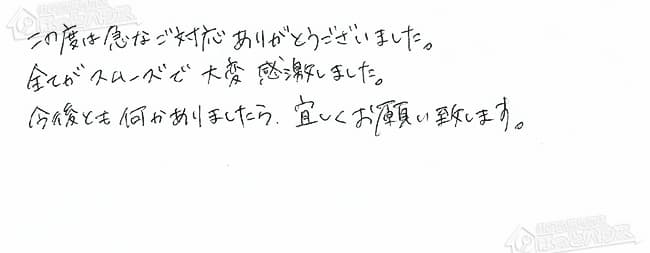 この度は急なご対応ありがとうございました。
全てがスムーズで大変感激しました。
今後とも何かありましたら、宜しくお願い致します。